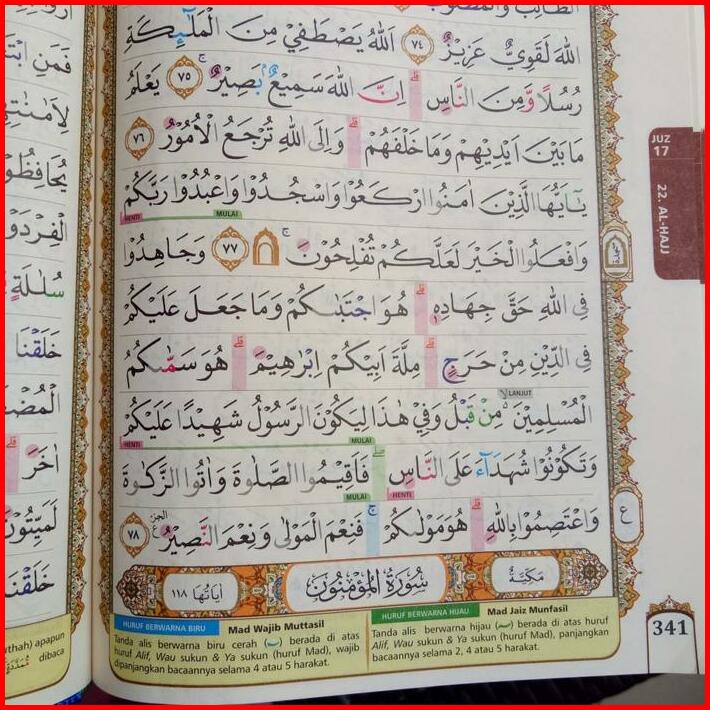 الطَّالِبُ وَالْمَطْلُوْبُ
اللّٰهَ لَقَوِيٌّ عَزِيْزٌ ﴿٧٤﴾ اَللّٰهُ يَصْطَفِيْ مِنَ الْمَلٰۤىِٕكَةِ
رُسُلًا وَّمِنَ النَّاسِۗ اِنَّ اللّٰهَ سَمِيْعٌۢ بَصِيْرٌۚ ﴿٧٥﴾ يَعْلَمُ
مَا بَيْنَ اَيْدِيْهِمْ وَمَا خَلْفَهُمْۗ وَاِلَى اللّٰهِ تُرْجَعُ الْاُمُوْرُ ﴿٧٦﴾
يٰٓاَيُّهَا الَّذِيْنَ اٰمَنُوا ارْكَعُوْا وَاسْجُدُوْا وَاعْبُدُوْا رَبَّكُمْ
MULAI HENTI
وَافْعَلُوا الْخَيْرَ لَعَلَّكُمْ تُفْلِحُوْنَۚ ۩ ﴿٧٧﴾ وَجَاهِدُوْا
فِى اللّٰهِ حَقَّ جِهَادِهٖۗ هُوَ اجْتَبٰىكُمْ وَمَا جَعَلَ عَلَيْكُمْ
فِى الدِّيْنِ مِنْ حَرَجٍۗ مِلَّةَ اَبِيْكُمْ اِبْرٰهِيْمَۗ هُوَ سَمّٰىكُمُ
LANJUT
الْمُسْلِمِيْنَ ەۙ مِنْ قَبْلُ وَفِيْ هٰذَا لِيَكُوْنَ الرَّسُوْلُ شَهِيْدًا عَلَيْكُمْ
MULAI HENTI
وَتَكُوْنُوْا شُهَدَاۤءَ عَلَى النَّاسِۖ فَاَقِيْمُوا الصَّلٰوةَ وَاٰتُوا الزَّكٰوةَ
HENTI MULAI
وَاعْتَصِمُوْا بِاللّٰهِۗ هُوَ مَوْلٰىكُمْۚ فَنِعْمَ الْمَوْلٰى وَنِعْمَ النَّصِيْرُ ﴿٧٨﴾
مَكِّيَّةٌ سُوْرَةُ الْمُؤْمِنُوْنَ اٰيَاتُهَا ١١٨
HURUF BERWARNA BIRU Mad Wajib Muttasil
Tanda alis berwarna biru cerah (ۤ) berada di atas
huruf Alif, Wau sukun & Ya sukun (huruf Mad), wajib
dipanjangkan bacaannya selama 4 atau 5 harakat.
HURUF BERWARNA HIJAU Mad Jaiz Munfasil
Tanda alis berwarna hijau (ٓ) berada di atas huruf
Alif, Wau sukun & Ya sukun (huruf Mad), panjangkan
bacaannya selama 2, 4 atau 5 harakat.
JUZ
17
22. AL-HAJJ
ع
341
فَمَنِ
خَلَقْنَا
اٰخَرَ
apapun
dibaca